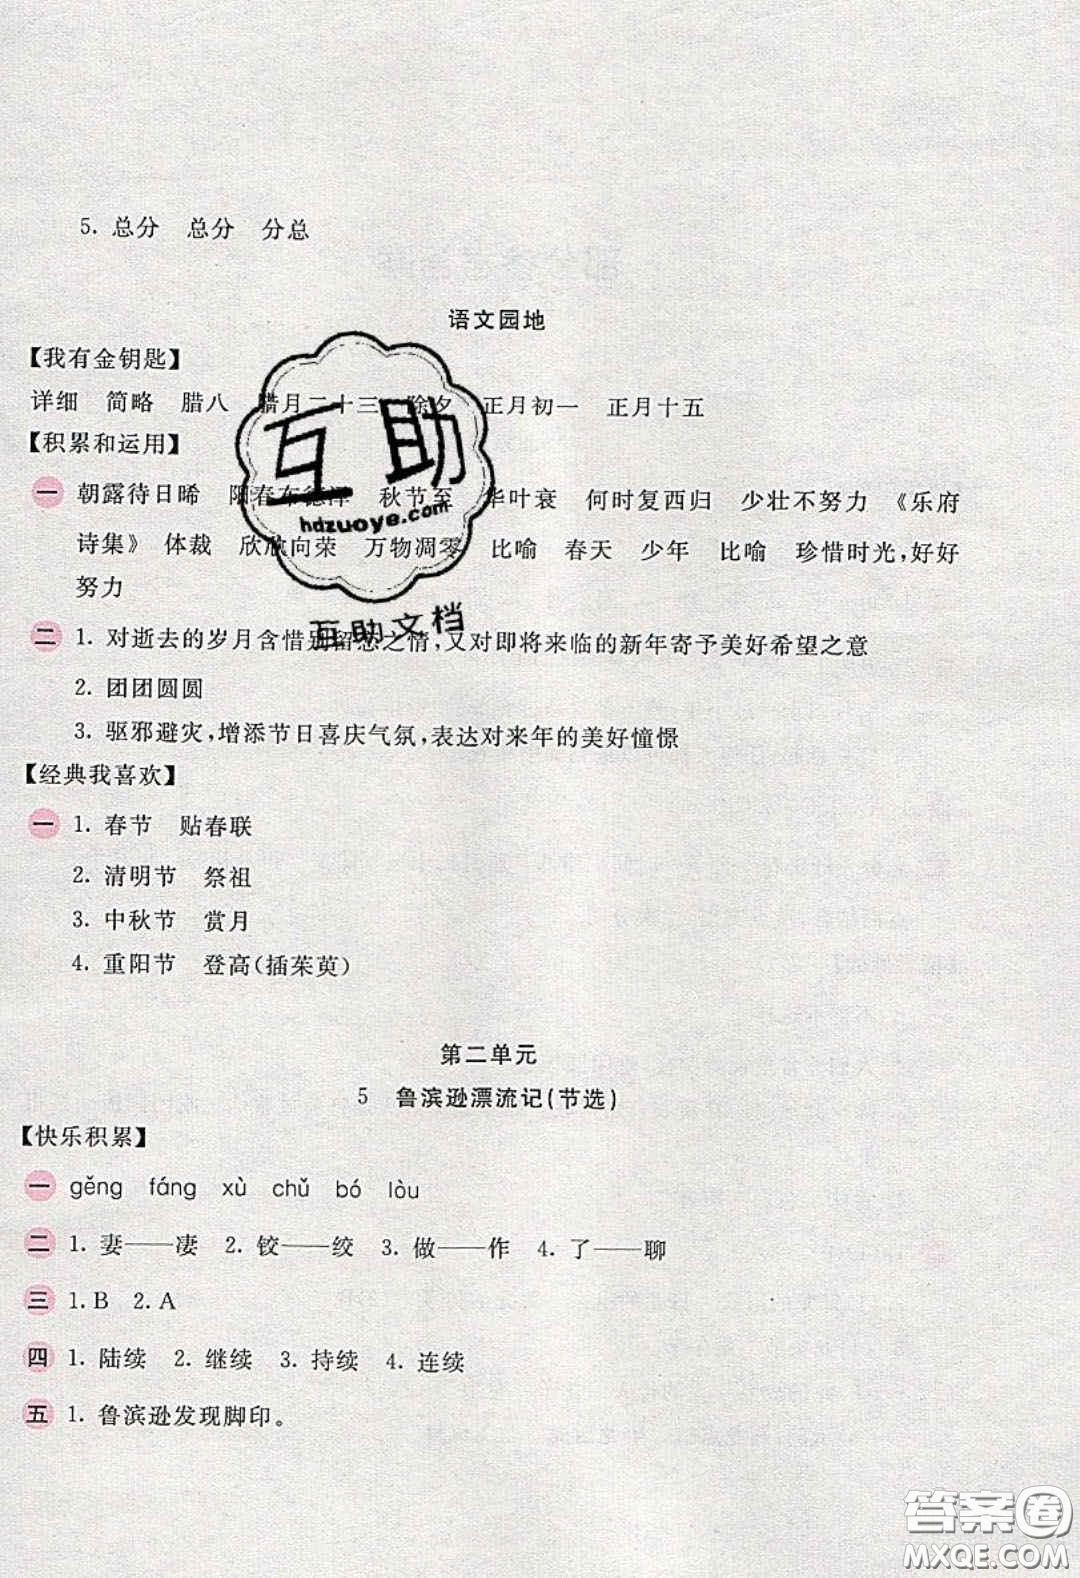 5. 总分 总分 分总
语文园地
【我有金钥匙】
详细 简略 腊八 腊月二十三 除夕 正月初一 正月十五
【积累和运用】
一 朝露待日晞 阳春布德泽 秋节至 华叶衰 何时复西归 少壮不努力 《乐府
诗集》 体裁 欣欣向荣 万物凋零 比喻 春天 少年 比喻 珍惜时光,好好
努力
二 1. 对逝去的岁月含惜别留恋之情,又对即将来临的新年寄予美好希望之意
2. 团团圆圆
3. 驱邪避灾,增添节日喜庆气氛,表达对来年的美好憧憬
【经典我喜欢】
一 1. 春节 贴春联
2. 清明节 祭祖
3. 中秋节 赏月
4. 重阳节 登高(插茱萸)
第二单元
5 鲁滨逊漂流记(节选)
【快乐积累】
一 gěng fáng xù chǔ bó lòu
二 1. 妻——凄 2. 铰——绞 3. 做——作 4. 了——聊
三 1. B 2. A
四 1. 陆续 2. 继续 3. 持续 4. 连续
五 1. 鲁滨逊发现脚印。
互助
hdzuoye.com
互助文档
答案圈
MXQE.COM